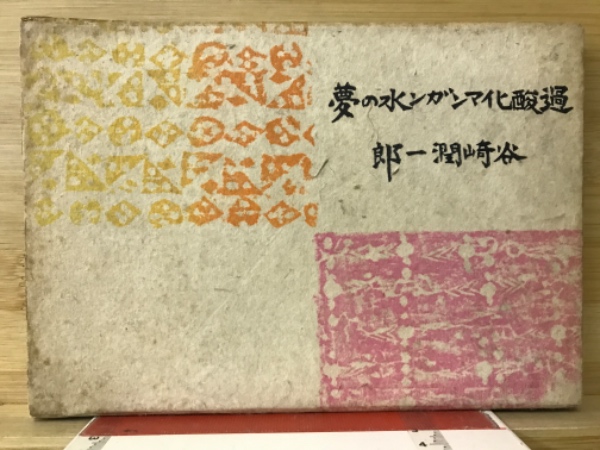 過酸化マンガン水の夢
谷崎潤一郎